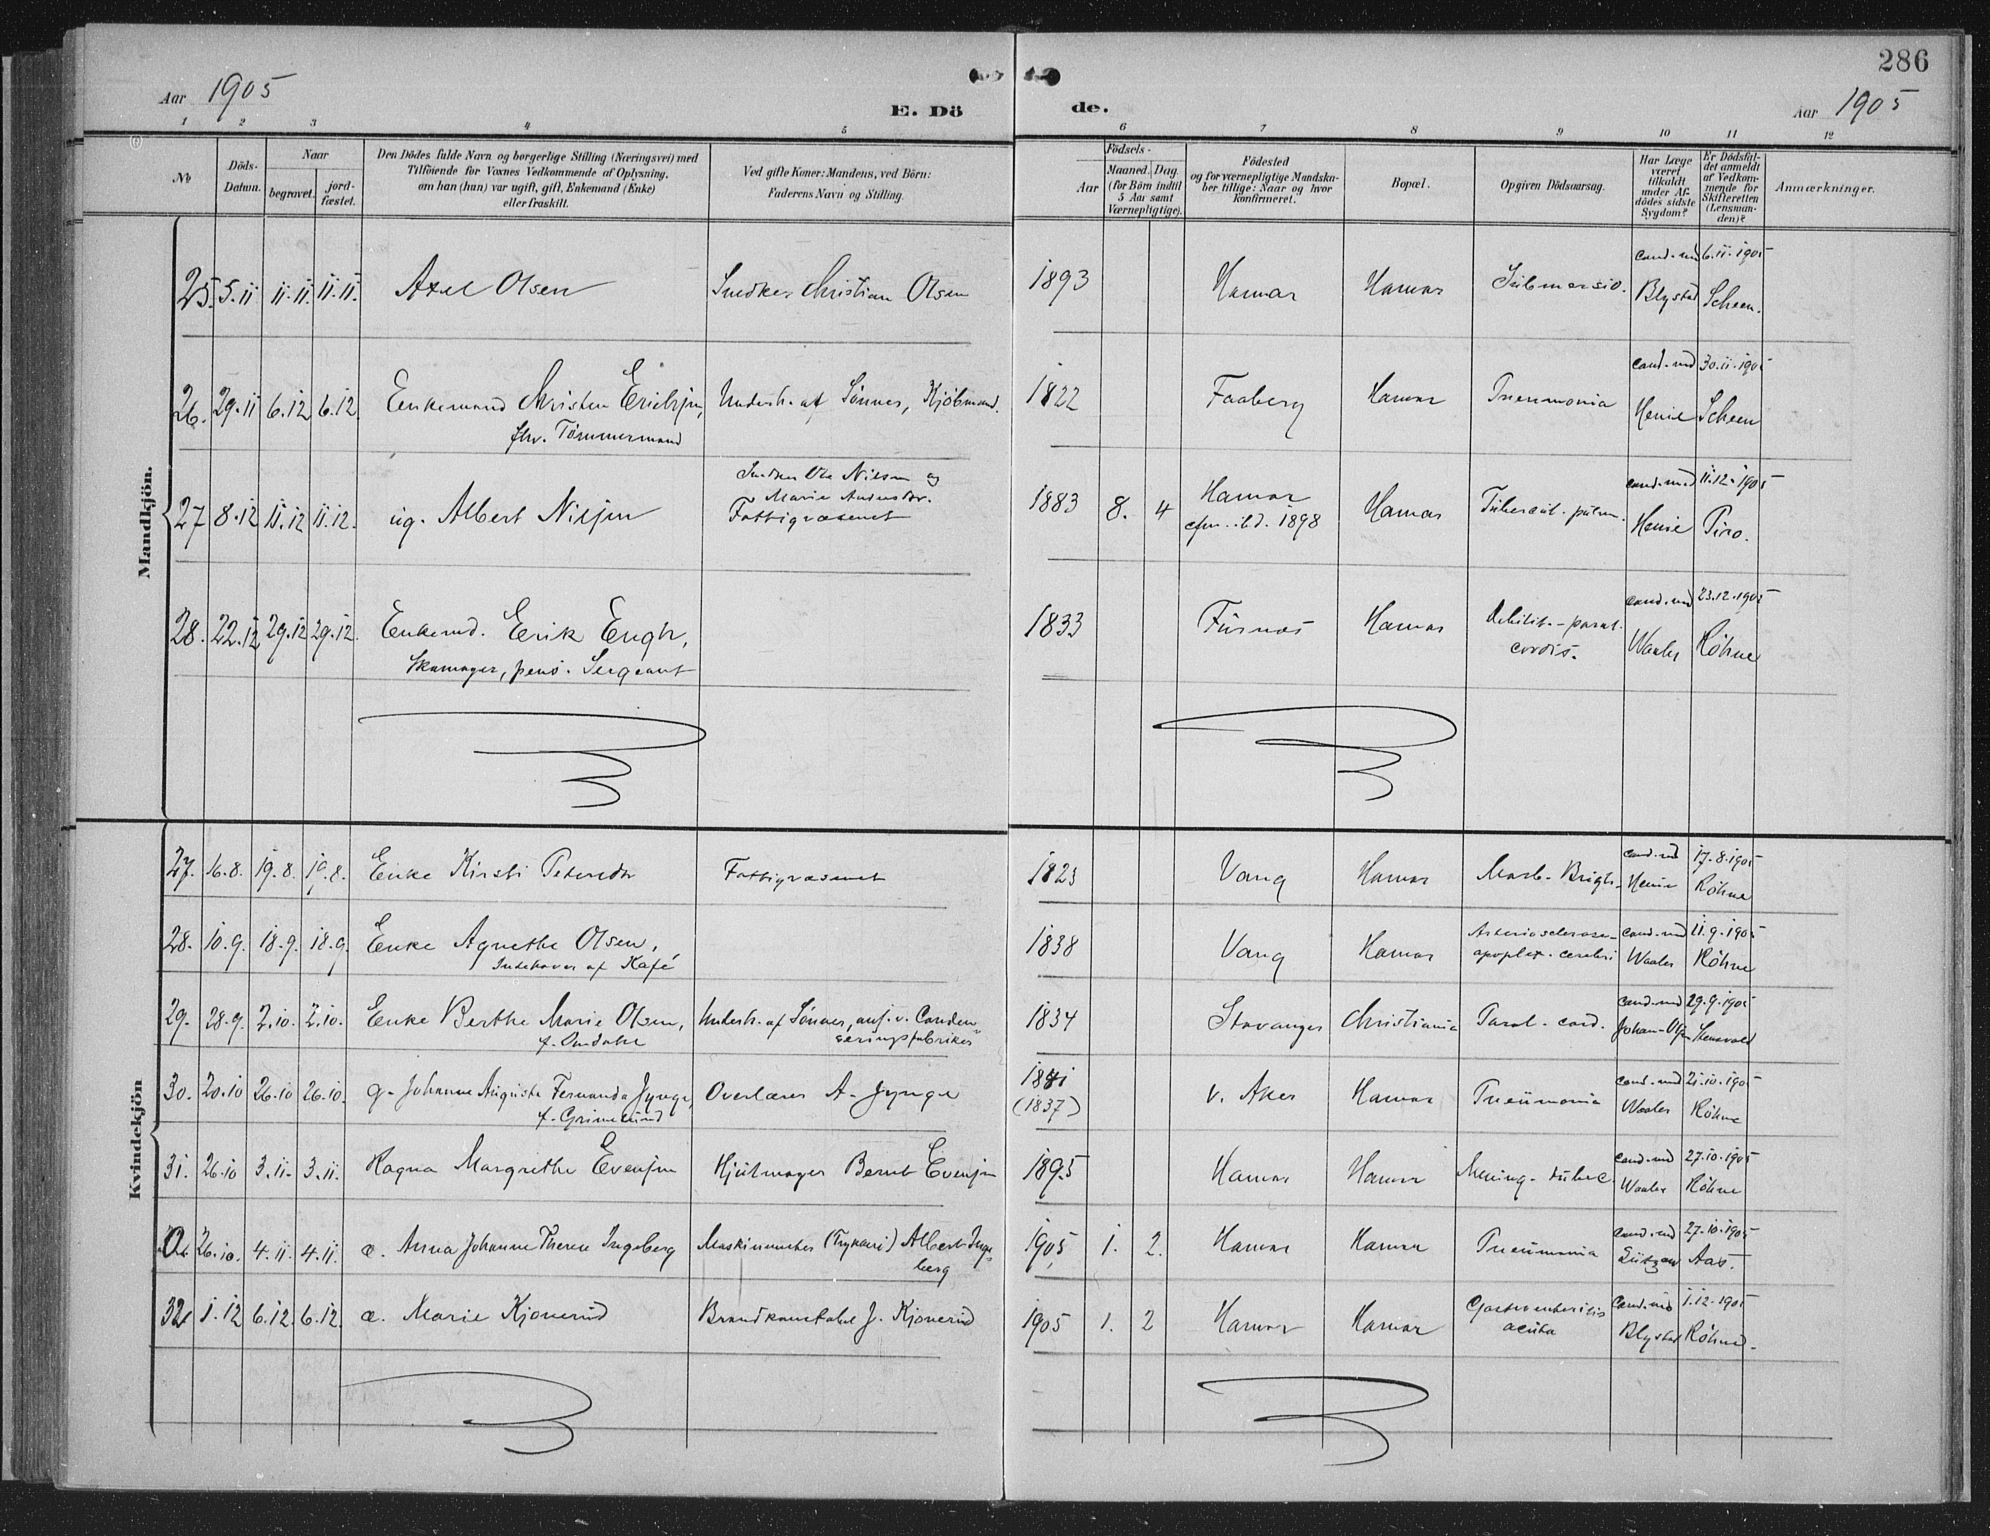 286
Aar 1905
E. Dö
de.
Aar 1905
1 2 3 4 5 6 7 8 9 10 11 12
No
Döds-
Datum.
Naar
begravet.
jord-
fæstet.
Den Dödes fulde Navn og borgerlige Stilling (Næringsvei) med
Tilföiende for Voxnes Vedkommende af Oplysning,
om han (hun) var ugift, gift, Enkemand (Enke)
eller fraskilt.
Ved gifte Koner: Mandens, ved Börn:
Faderens Navn og Stilling.
Födsels-
Aar
Maaned. Dag.
(for Börn indtil
5 Aar samt
Værnepligtige).
Födested
og for værnepligtige Mandska-
ber tillige: Naar og hvor
konfirmeret.
Bopæl.
Opgiven Dödsaarsag.
Har Læge
været
tilkaldt
under Af-
dödes sidste
Sygdom?
Er Dödsfal-
det anmeldt
af Vedkom-
mende for
Skifteretten
(Lensman-
den)?
Anmærkninger.
Mandkjön.
25. 5.11 11.11 11.11. Axel Olsen Snedker Christian Olsen 1893 Hamar Hamar Submersio. cand. med Blystad 6.11.1905 Scheen.
26. 29.11 6.12 6.12 Enkemand Christen Erichsen, Underh. af Sönner, Kjöbmænd. 1822 Faaberg Hamar Pneumonia cand. med Henie 30.11.1905 Scheen
fhv. Tömmermand
Snedker Ole Nilsen og
Marie Andersdr.
27 8.12 11.12 11.12. ug. Albert Nilsen Fattigvæsenet 1883 8. 4 Hamar Hamar Tubercul. pulm. cand. med Henie 11.12.1905 Piro.
cfm. ibd. 1898
28. 22.12 29.12 29.12. Enkemd. Erik Engh, 1833 Furnæs Hamar Debilit. - paral. cand. med Waaler 23.12.1905 Röhne
Skomager, pens. Sergeant
cordis.
Kvindekjön
27. 16.8. 19.8. 19.8. Enke Kirsti Petersdr Fattigvæsenet 1823 Vang Hamar Morb. Brigh. cand. med Henie 17.8.1905 Röhne
28. 10.9. 18.9. 18.9. Enke Agnethe Olsen, 1838 Vang Hamar Arteriosclerose- cand. med Waaler 11.9.1905 Röhne
Indehaver af Kafé
apoplex. cerebri
29. 28.9. 2.10. 2.10. Enke Berthe Marie Olsen, Underh. af Sönner, ans. v. Conden- 1834 Stavanger Christiania Paral. cord. cand. med 29.9.1905
f. Omdahl
seringsfabriken
30. 20.10 26.10 26.10. g. Johanne Augusta Fernanda Jynge, Overlærer A. Jynge 1841 v. Aker Hamar Pneumonia cand. med Waaler 21.10.1905 Röhne
f. Grimelund
(1837)
31. 26.10 3.11. 3.11. Ragna Margrethe Evensen Hjulmager Bernt Evensen 1895 Hamar Hamar Mening. tuberc. cand. med Waaler 27.10.1905 Röhne
26.10. 4.11. 4.11. æ. Anna Johanne Therese Ingeberg Maskinmester (Trykeri) Albert Inge- 1905, 1. 2. Hamar Hamar Pneumonia cand. med Lützow 27.10.1905 Aas.
berg
32. 1.12 6.12. 6.12. æ. Marie Kjonerud Brandkonstabel J. Kjonerud 1905 1. 2 Hamar Hamar Gastroenteritis cand. med Blystad 1.12.1905 Röhne.
acuta